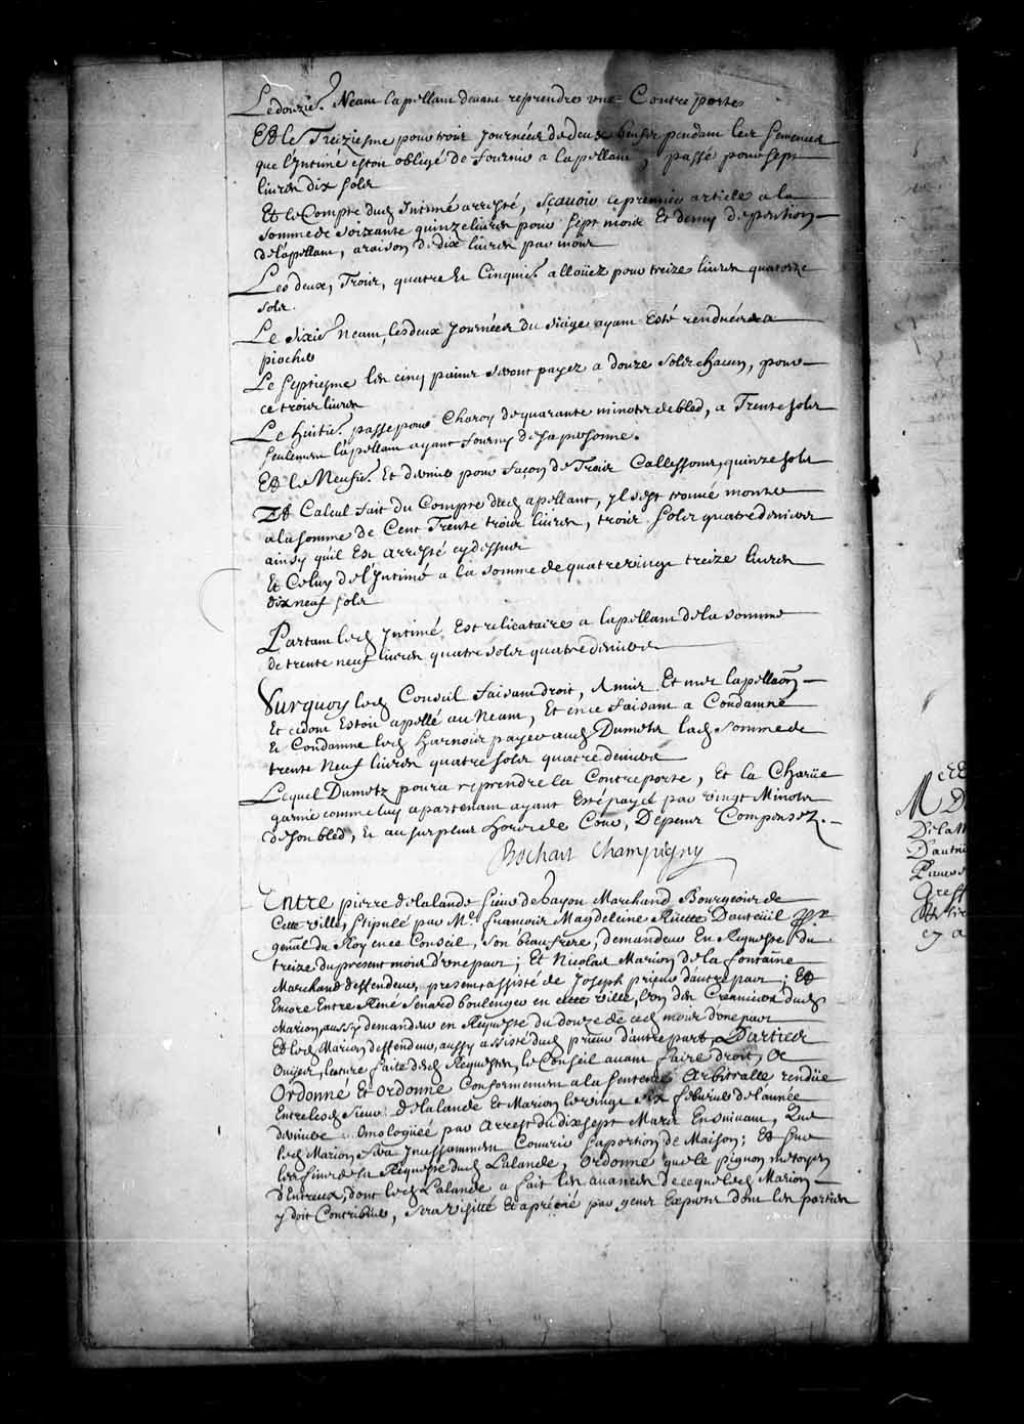 Le douzie. Neant lapellant devant reprendre une Contre porte
Et le Treiziesme pour trois journées de deux pendant les semences
que l'Intimé estoit obligé de fournir a lapellant, passé pour sept
livres dix sols
Et le Compte dud. Intimé arresté, Scavoir le premier article a la
somme de soixante quinze livres pour sept mois Et demy de pention
de l'apellant, a raison de dix livres par mois
Les deux, Trois, quatre Et Cinquie. alloüez pour treize livres quatorze
sols.
Le sixie. neant, les deux journées du siege ayant Esté rendües a
piocher
Le septiesme les cinq seront payez a douze sols chacun, pour
ce trois livres
Le huitie. passe pour Charoy de quarante minots de bled, a Trente sols
seulement l'apellant ayant fourny de sa personne.
Et le Neufie. Et dernier pour façon de Trois Callessons, quinze sols
Et Calcul fait du Compte dud. apellant, yl s'est trouvé monter
a la somme de Cent Trente trois livres, trois sols quatre deniers
ainsy qu'il Est arresté cy dessus
Et Celuy de l'Intimé a la somme de quatre vingt treize livres
dix neuf sols
Partant led. Intimé, Est relicataire a lapellant de la somme
de trente neuf livres quatre sols quatre deniers
Surquoy led. Conseil faisant droit, A mis Et met lapellaon
Et ce dont Estoit appellé au Neant, Et en ce faisant a Condamné
Et Condamne led. Harnois payer aud. Dumetz lad. somme de
trente Neuf livres quatre sols quatre deniers
Lequel Dumetz poura reprendre la Contreporte, Et la Charüe
garnie comme luy apartenant ayant Esté payé par vingt Minots
de son bled, Et au surplus hors de Cour, Depens Compensez.
Bochart Champigny
Entre pierre delalande sieur de Gayon Marchand Bourgeois de
Cette ville, stipulé par Me. françois Magdeleine Rüette Dauteüil
genal du Roy en ce Conseil, son beau frere, demandeur En Requeste du
treize du present mois d'une part; Et Nicolas Marion de la fontaine
Marchand deffendeur, present assisté de Joseph prieur d'autre part; Et
Encore Entre René Senard boulenger en cette ville, l'un des Creanciers dud.
Marion, aussy demandeur en Requeste du douze de ced. mois d'une part
Et led. Marion deffendeur, aussy assisté dud. prieur d'autre part, Parties
Ouyes, lecture faite desd. Requestes, le Conseil avant faire droit, A
Ordonné Et ordonne Conformement a la sentence Arbitralle rendüe
Entre lesd. sieurs delalande Et Marion le vingt six febvrier de l'année
derniere Omologuée par arrest du dix sept Mars Ensuivant, Que
led. Marion fera Incessamment Couvrir sa portion de Maison; Et sur
les fins de la Requeste dud. Lalande, Ordonne que le pignon mitoyen
d'Entreux, dont led. Lalande a fait les avances de ce que led. Marion
y doit Contribuer, sera visitté Et aprétié par gens Experts dont les parties